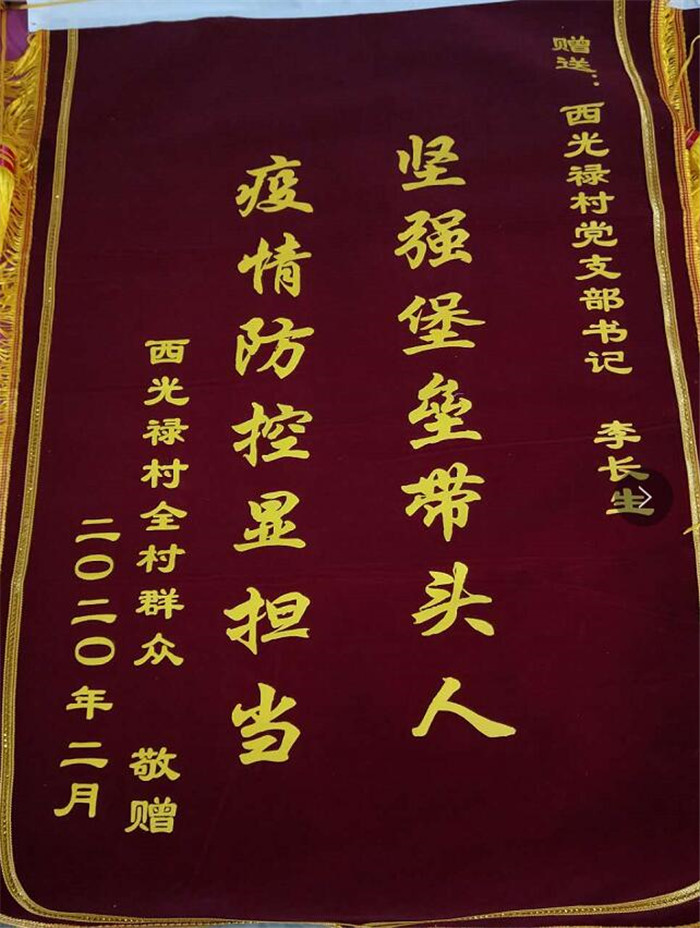 赠送：西光禄村党支部书记 李长生
坚强堡垒带头人
疫情防控显担当
西光禄村全村群众 敬赠
二〇二〇年二月